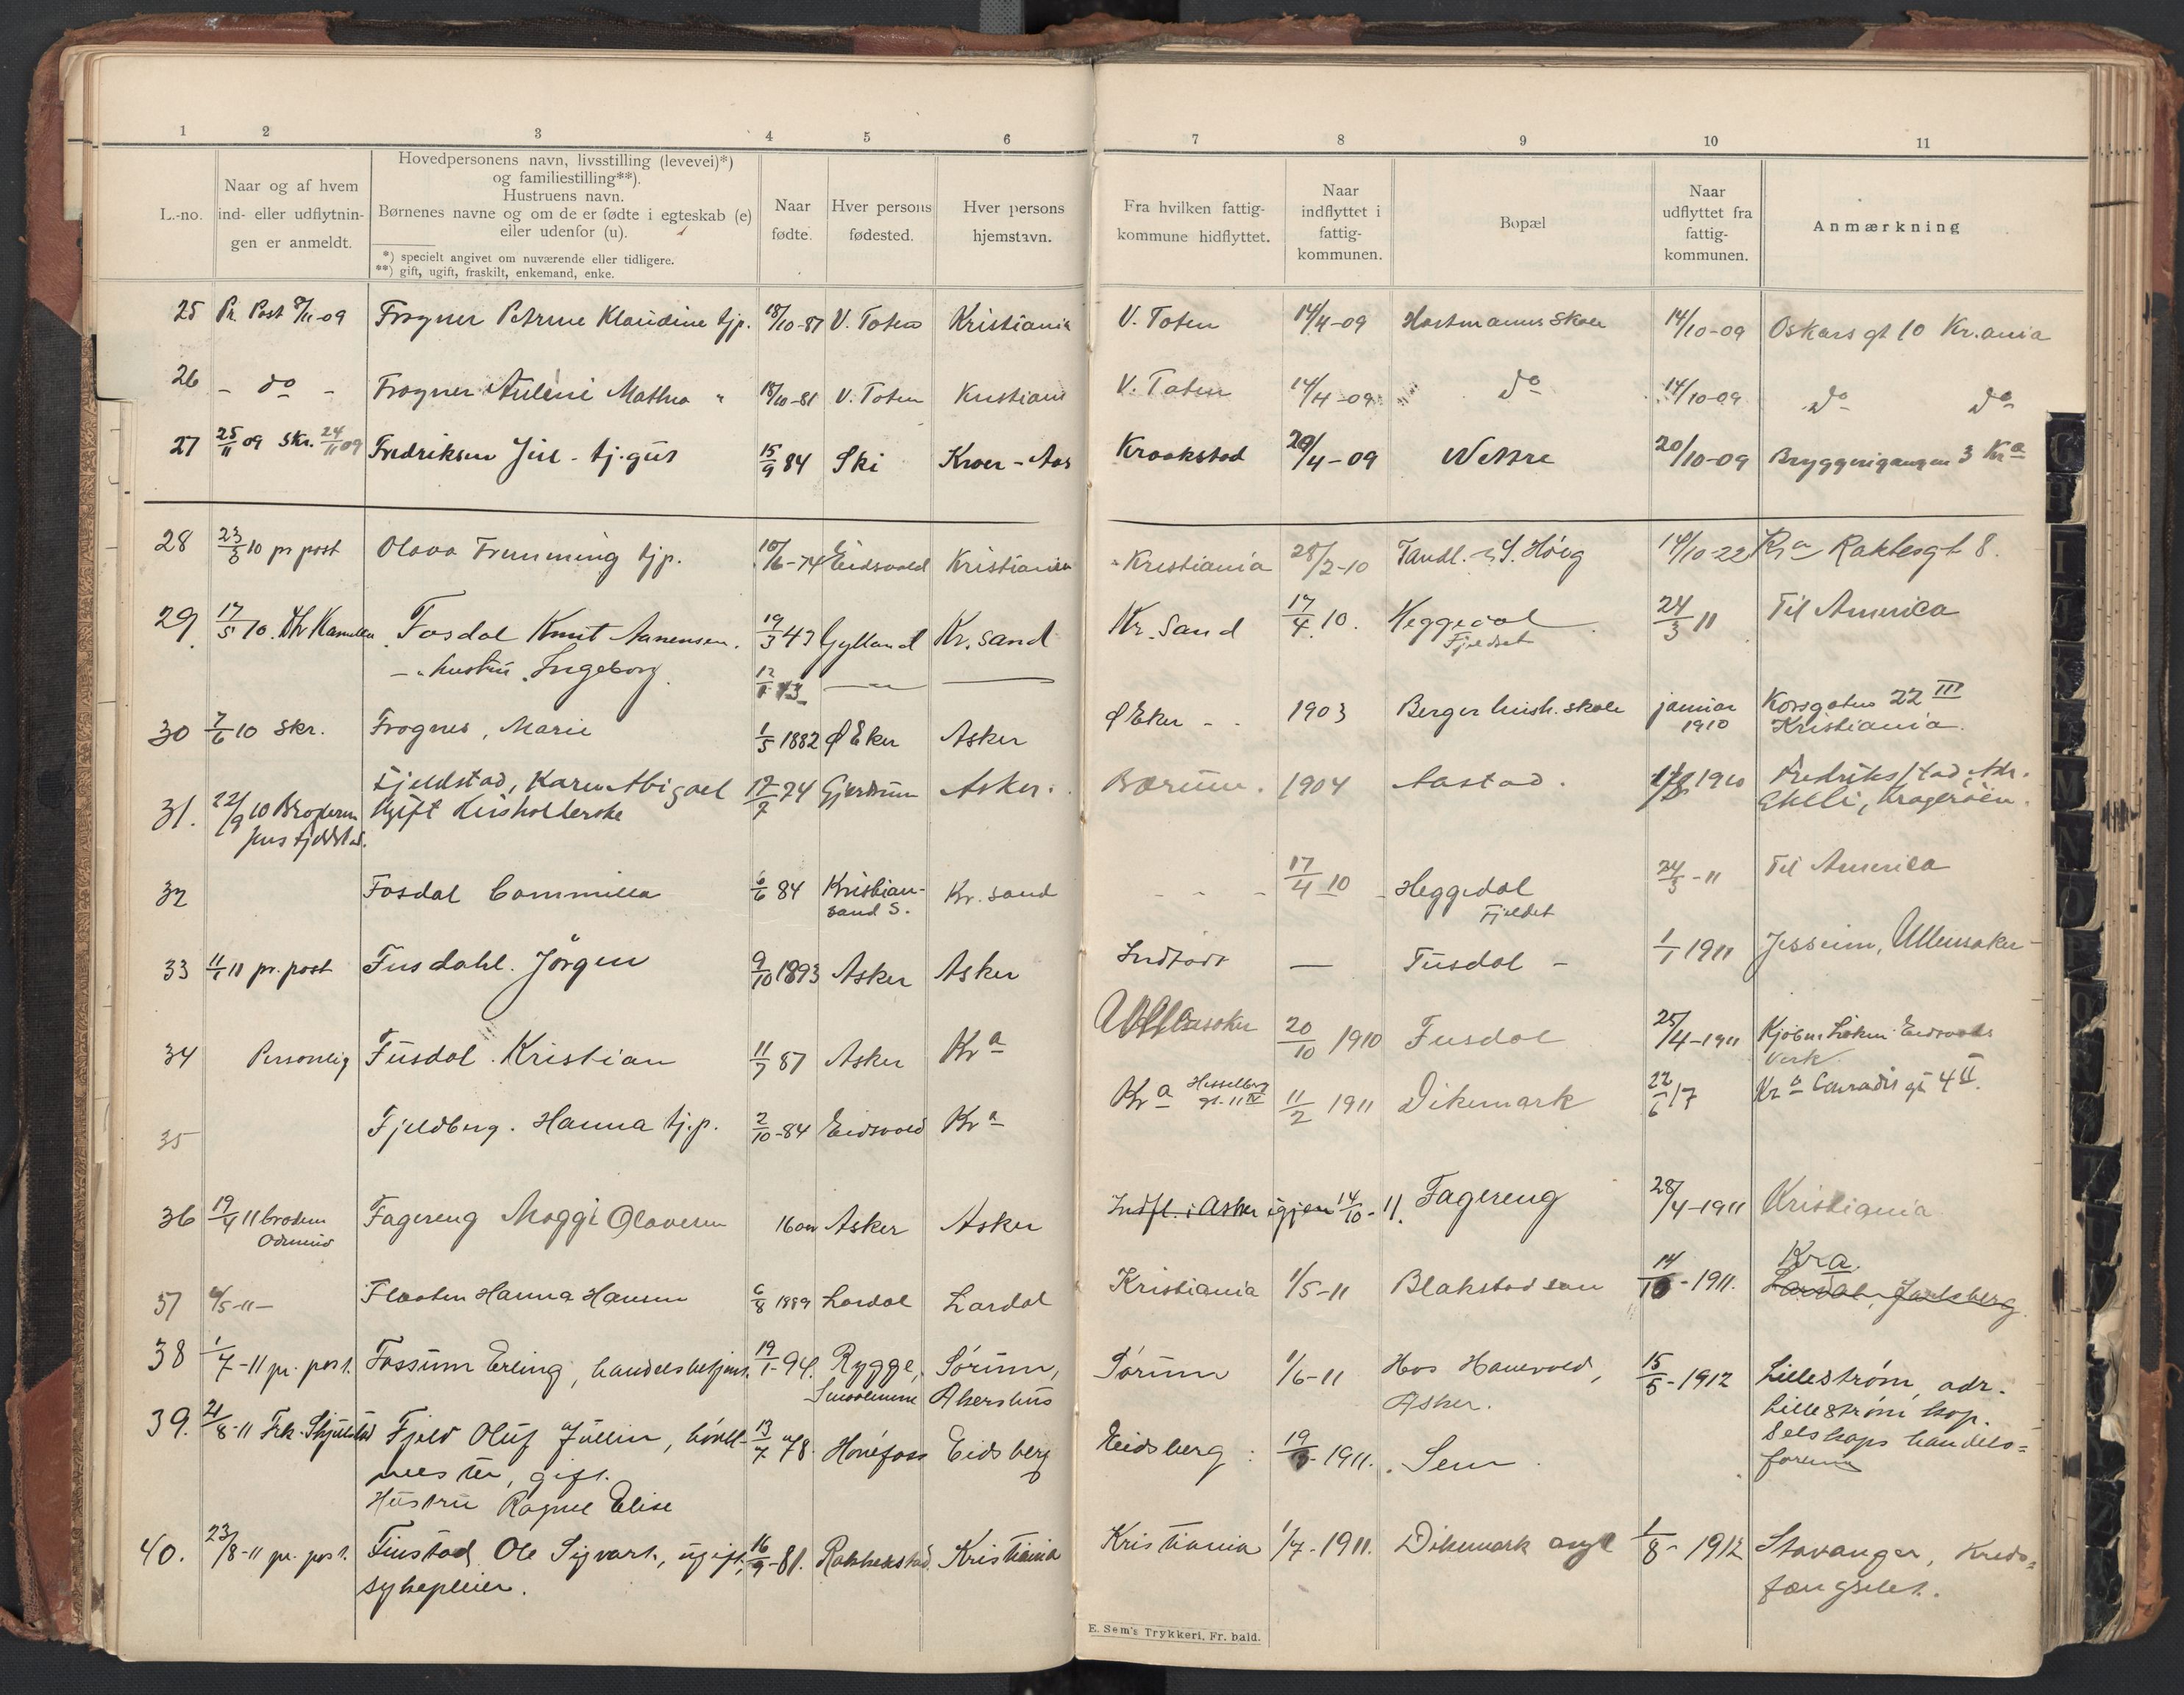 1 2 3 4 5 6 7 8 9 10 11
L.-no.
Naar og af hvem
ind- eller udflytnin-
gen er anmeldt.
Hovedpersonens navn, livsstilling (levevei)*)
og familiestilling**).
Hustruens navn.
Børnenes navne og om de er fødte i egteskab (e)
eller udenfor (u).
*) specielt angivet om nuværende eller tidligere.
**) gift, ugift, fraskilt, enkemand, enke.
Naar
fødte.
Hver persons
fødested.
Hver persons
hjemstavn.
Fra hvilken fattig-
kommune hidflyttet.
Naar
indflyttet i
fattig-
kommunen.
Bopæl
Naar
udflyttet fra
fattig-
kommunen.
Anmærkning
25 Pr. Post 8/11-09 Frogner Petrine Klaudine tjp. 18/10-87 V. Toten Kristiania V. Toten 14/4-09 Hartmanns Skole 14/10-09 Oskars gt 10 Kr.ania
26 - do - Frogner Mathea " 18/10-81 V. Toten Kristiani V. Toten 14/4-09 do 14/10-09 do do
27 25/11 09 Skr. 24/11 09 Fredriksen - tj.gut 15/9 84 Ski Kroer - Aas Kraakstad 20/4-09 Nesbre 20/10-09 Bryggerigangen 3 Kra
28 23/3 10 pr post Olava Fremming tjp. 10/6-74 Eidsvold Kristiania Kristiania 28/2-10 Tandl. S. Høeg 14/10-22 Kra Rakkesgt 8.
29. 17/5 10. Fosdal Knut Aanensen. 19/3 43 Gylland Kr. sand Kr. Sand 17/4 10. Heggedal 24/3 11 Til America
Fjeldet
- " hustru Ingeborg. 12/1 43 — —
30 7/6 10 skr. Frogner, Marie 1/5 1882 Ø Eker Asker Ø Eker - - 1903 Berger hush. skole januar Korsgaten 22 III
1910 Kristiania.
31. 22/9 10 Broderen Fjeldstad, Karen Abigael 17/7 74 Gjerdrum Asker. Bærum. 1904 Aastad. 1910 Fredrikstad Adr.
Jens Fjeldstad. Ugift Husholderske Ekeli, Kragerøen.
32 Fosdal Cammilla 6/6 84 Kristian- Kr. sand - - - 17/4 10 Heggedal 24/3 - 11 Til America
sand S. Fjeldet
33 11/1 11 pr. post Fusdahl. Jørgen 9/10 1893 Asker Asker Indfødt — Fusdal - 1/1 1911 Jessheim, Ullensaker
34 Personlig Fusdal. Kristian 11/7 87 Asker Kra Ullensaker 20/10 1910 Fusdal 25/4-1911 Kjøbm. Løken Eidsvolds
Verk
35 Fjeldberg. Hanna tj.p. 2/10-84 Eidsvold Kra Kra Hesselberg 11/2 1911 Dikemark 22/6 17 Kra Conradis gt 4 II.
gt. 11 IV
36 19/4 11 broderen Fagereng Maggi Olavesen 16 aar Asker Asker Indfl. i Asker igjen 14/10-11. Fagereng 28/4-1911 Kristiania
37 4/5-11 - Flaaten Hanna Hansen 6/8 1889 Lardal Lardal Kristiania 1/5-11 Blakstad 14/10-1911. Kra.
Lardal, Jarlsberg
38 1/7-11 pr. post. Fossum Erling, handelsbetjent. 19/1-94. Rygge, Sørum, Sørum 1/6-11 Hos Hanevold, 15/5-1912 Lillestrøm, adr.
Smaalenene Akershus Asker. Lillestrøm kop.
selskaps handels=
forening
39. 21/8-11 Frk. Fjeld Oluf Jullin, 13/7 78. Hønefoss Eidsberg Eidsberg: 19/-1911. Sem
mester, gift.
Hustru Ragna Elise
40. 23/8-11 pr. post. Finstad Ole Sigvart, ugift, 16/9-81. Rakkestad. Kristiania Kristiania 1/7-1911. Dikemark asyl 1/8-1912 Stavanger, Kreds=
sykepleier. fængslet.
E. Sem's Trykkeri, Fr. hald.